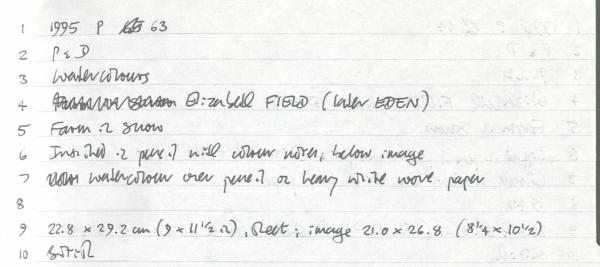 1 1995 P 63
2 P & D
3 Watercolours
4 Elizabeth FIELD (later EDEN)
5 Farm in snow
6 Inscribed in pencil with colour notes, below image
7 watercolour over pencil on heavy white wove paper
8
9 22.8 x 29.2 cm (9 x 11 1/2 in), sheet; image 21.0 x 26.8 (8 1/4 x 10 1/2)
10 British